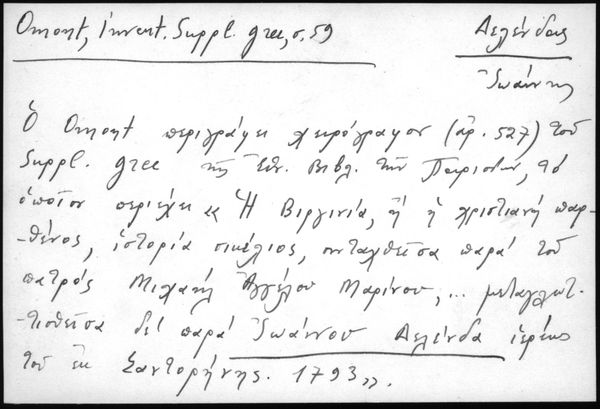 Omont, Invent. Suppl. grec, σ. 59
Δελένδας
Ἰωάννης
Ὁ Omont περιγράφει χειρόγραφον (ἀρ. 527) τοῦ
Suppl. grec τῆς Ἐθν. Βιβλ. τῶν Παρισίων, τὸ
ὁποῖον περιέχει «Ἡ Βιργινία, ἢ ἡ χριστιανή παρ-
-θένος, ἱστορία σικέλιος, συνταχθεῖσα παρά τοῦ
πατρός Μιχαήλ Ἀγγέλου Μαρίνου,... μεταγλωτ-
-τισθεῖσα δέ παρά Ἰωάννου Δελένδα ἱερέως
τοῦ ἐκ Σαντορήνης. 1793».